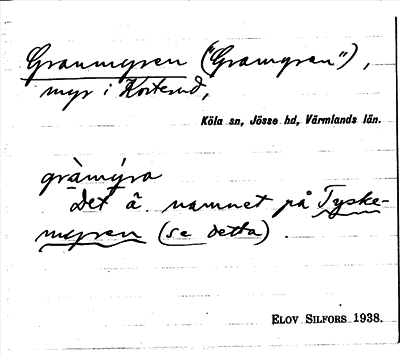 Granmyren ("Gramyran"),
myr i Korterud,
Köla sn, Jösse hd, Värmlands län.
gràmýra
Det ä. namnet på Tyske-
myren (se detta).
ELOV SILFORS 1938.